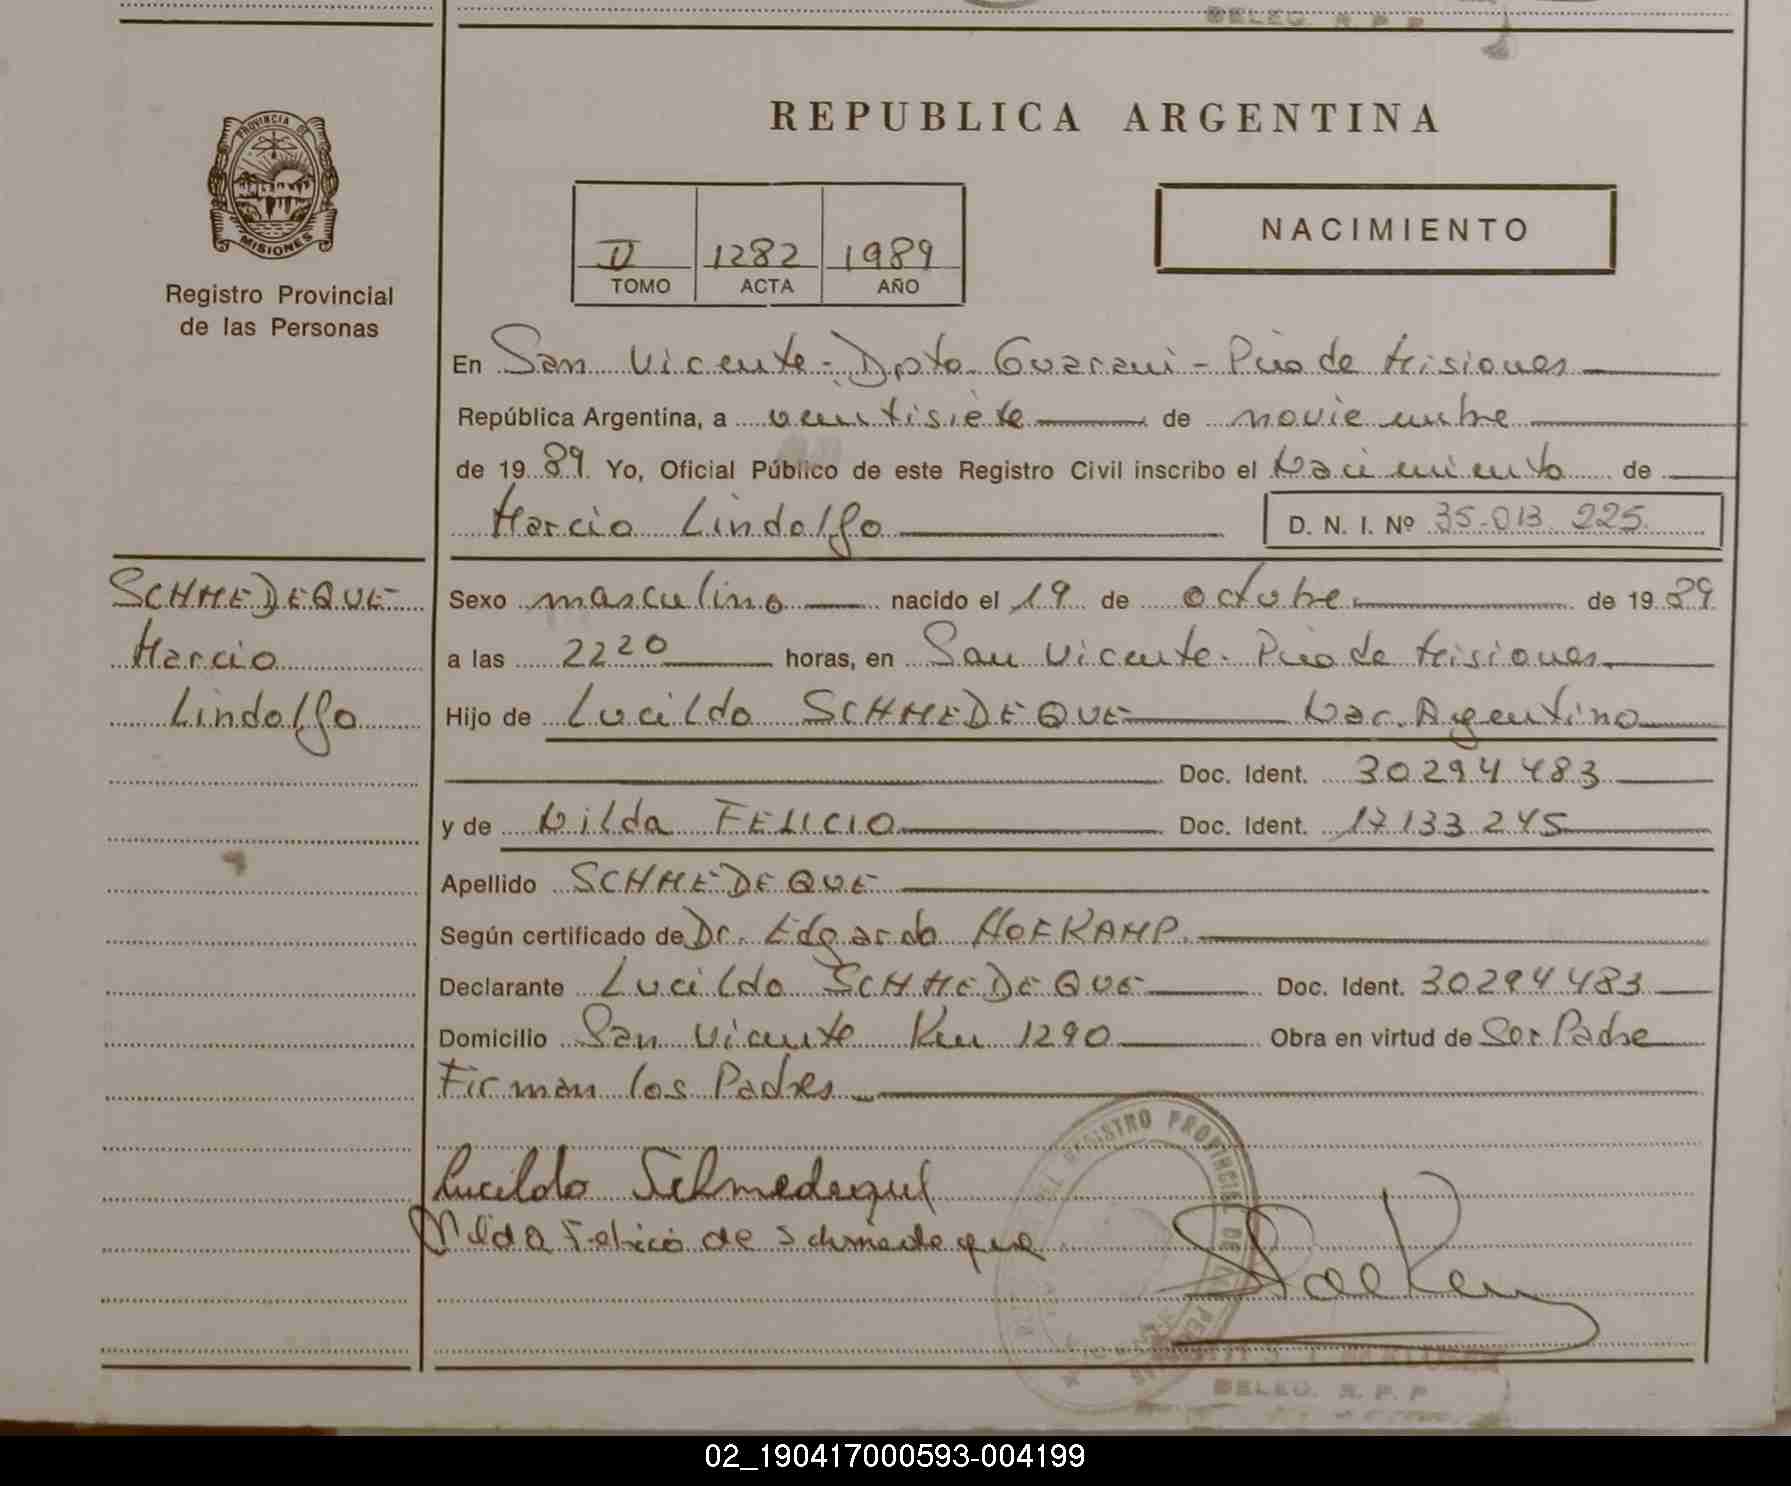 DELEG. R. P. P.
REPUBLICA ARGENTINA
PROVINCIA DE
MISIONES
Registro Provincial
de las Personas
II 1282 1989
TOMO ACTA AÑO
NACIMIENTO
En San Vicente - Dpto. Guarani - Pcia de Misiones
República Argentina, a ventisiete de noviembre
de 1989. Yo, Oficial Público de este Registro Civil inscribo el Nacimiento de
Marcio Lindolfo
D. N. I. Nº 35.013.225
SCHMEDEQUE
Marcio
Lindolfo
Sexo masculino nacido el 19 de octubre de 1989
a las 22 20 horas, en San Vicente - Pcia de Misiones
Hijo de Lucildo SCHMEDEQUE Nac. Argentino
Doc. Ident. 30294483
y de Nilda FELICIO Doc. Ident. 17133245
Apellido SCHMEDEQUE
Según certificado de Dr. Edgardo HOFKAMP.
Declarante Lucildo SCHMEDEQUE Doc. Ident. 30294483
Domicilio San Vicente Km 1290 Obra en virtud de Ser Padre
Firman los Padres
Lucildo Schmedeque
Nilda Felicio de Schmedeque
REGISTRO PROVINCIAL DE
DELEG. R. P. P
02_190417000593-004199